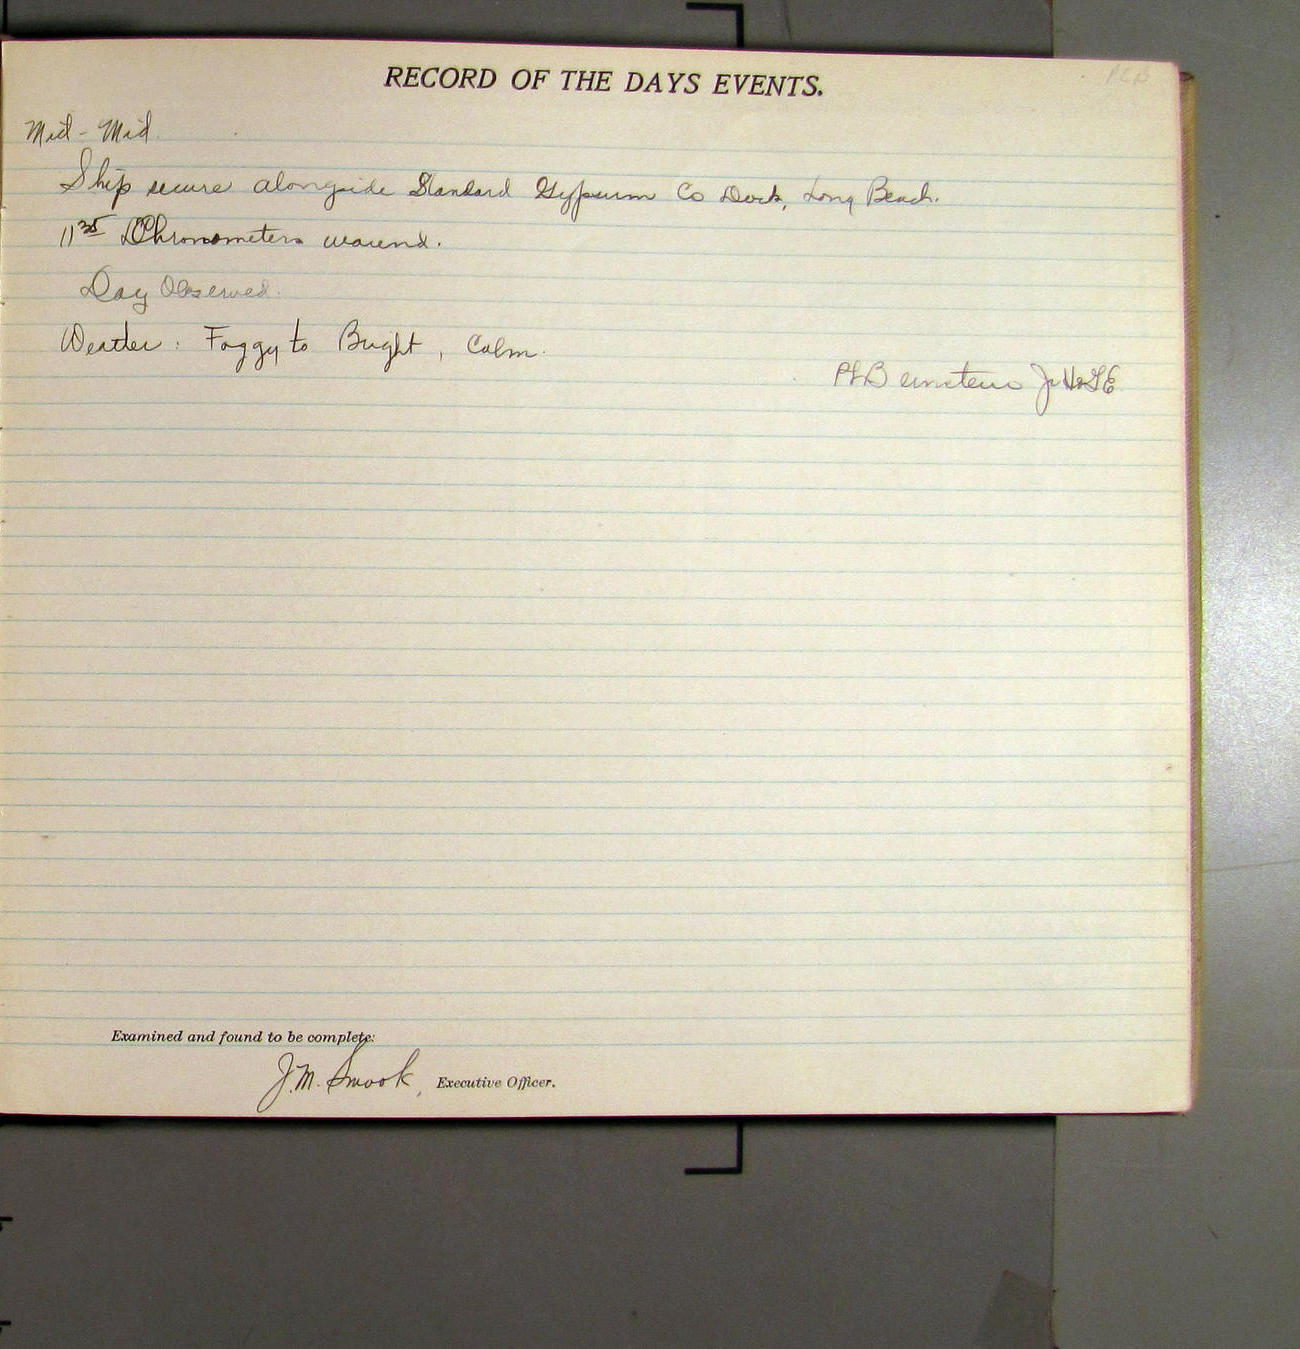 RECORD OF THE DAYS EVENTS.
Mid - Mid.
Ship secure alongside Standard Gypsum Co Dock, Long Beach.
11 35 Chronometers wound.
Day Observed.
Weather: Foggy to Bright, Calm.
Bernstein Jr H&GE
Examined and found to be complete:
J.M. Smook, Executive Officer.